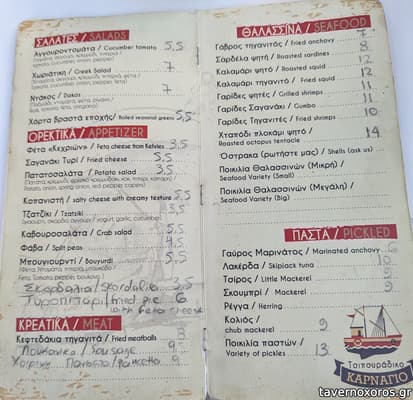 ΣΑΛΑΤΕΣ / SALADS
Αγγουροντομάτα / Cucumber tomato 5,5
Χωριάτικη / Greek Salad 7
Ντάκος / Dakos 7
Χόρτα βραστά εποχής / Boiled seasonal greens 5,5
ΟΡΕΚΤΙΚΑ / APPETIZER
Φέτα «Κεχριών» / Feta cheese from Kehries 3,5
Σαγανάκι Τυρί / Fried cheese 5,5
Πατατοσαλάτα / Potato salad 3,5
Κοπανιστή / Salty cheese with creamy texture 5,5
Τζατζίκι / Tzatziki 3,5
Καβουροσαλάτα / Crab salad 5,5
Φάβα / Split peas 4,5
Μπουγιουρντί / Bouyurdi 5,5
Σκορδαλιά / Skordalia 3,5
Τυροπιτάρι / fried pie 6
with feta cheese
ΚΡΕΑΤΙΚΑ / MEAT
Κεφτεδάκια τηγανιτά / Fried meatballs 8
Λουκάνικο / Sousage 9
9
ΘΑΛΑΣΣΙΝΑ / SEAFOOD
Γάβρος τηγανιτός / Fried anchovy 7
Σαρδέλα ψητή / Roasted sardines 8
Καλαμάρι ψητό / Roasted squid 12
Καλαμάρι τηγανιτό / Fried squid 12
Γαρίδες ψητές / Grilled shrimps 11
Γαρίδες Σαγανάκι / Gumbo 11
Γαρίδες Τηγανιτές / Fried shrimps 10
Χταπόδι πλοκάμι ψητό / 14
Roasted octopus tentacle
Όστρακα (ρωτήστε μας) / Shells (ask us)
Ποικιλία Θαλασσινών (Μικρή) /
Seafood Variety (Small)
Ποικιλία Θαλασσινών (Μεγάλη) /
Seafood Variety (Big)
ΠΑΣΤΑ / PICKLED
Γαύρος Μαρινάτος / Marinated anchovy 6
Λακέρδα / Skipjack tuna 10
Τσίρος / Little Mackerel 9
Σκουμπρί / Mackerel 9
Ρέγγα / Herring
Κολιός /
chub mackerel 9
Ποικιλία παστών /
Variety of pickles 13
Τσιπουράδικο
ΚΑΡΝΑΓΙΟ
tavernoxoros.gr